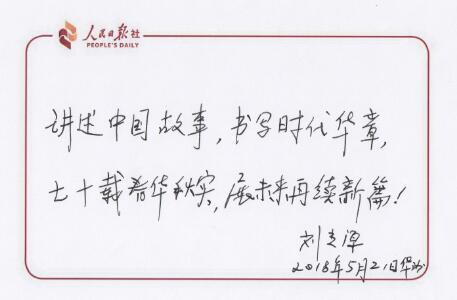 人民日报社
PEOPLE'S DAILY
讲述中国故事,书写时代华章,
七十载春华秋实,展未来再续新篇!
刘光源
2018年5月21日华沙